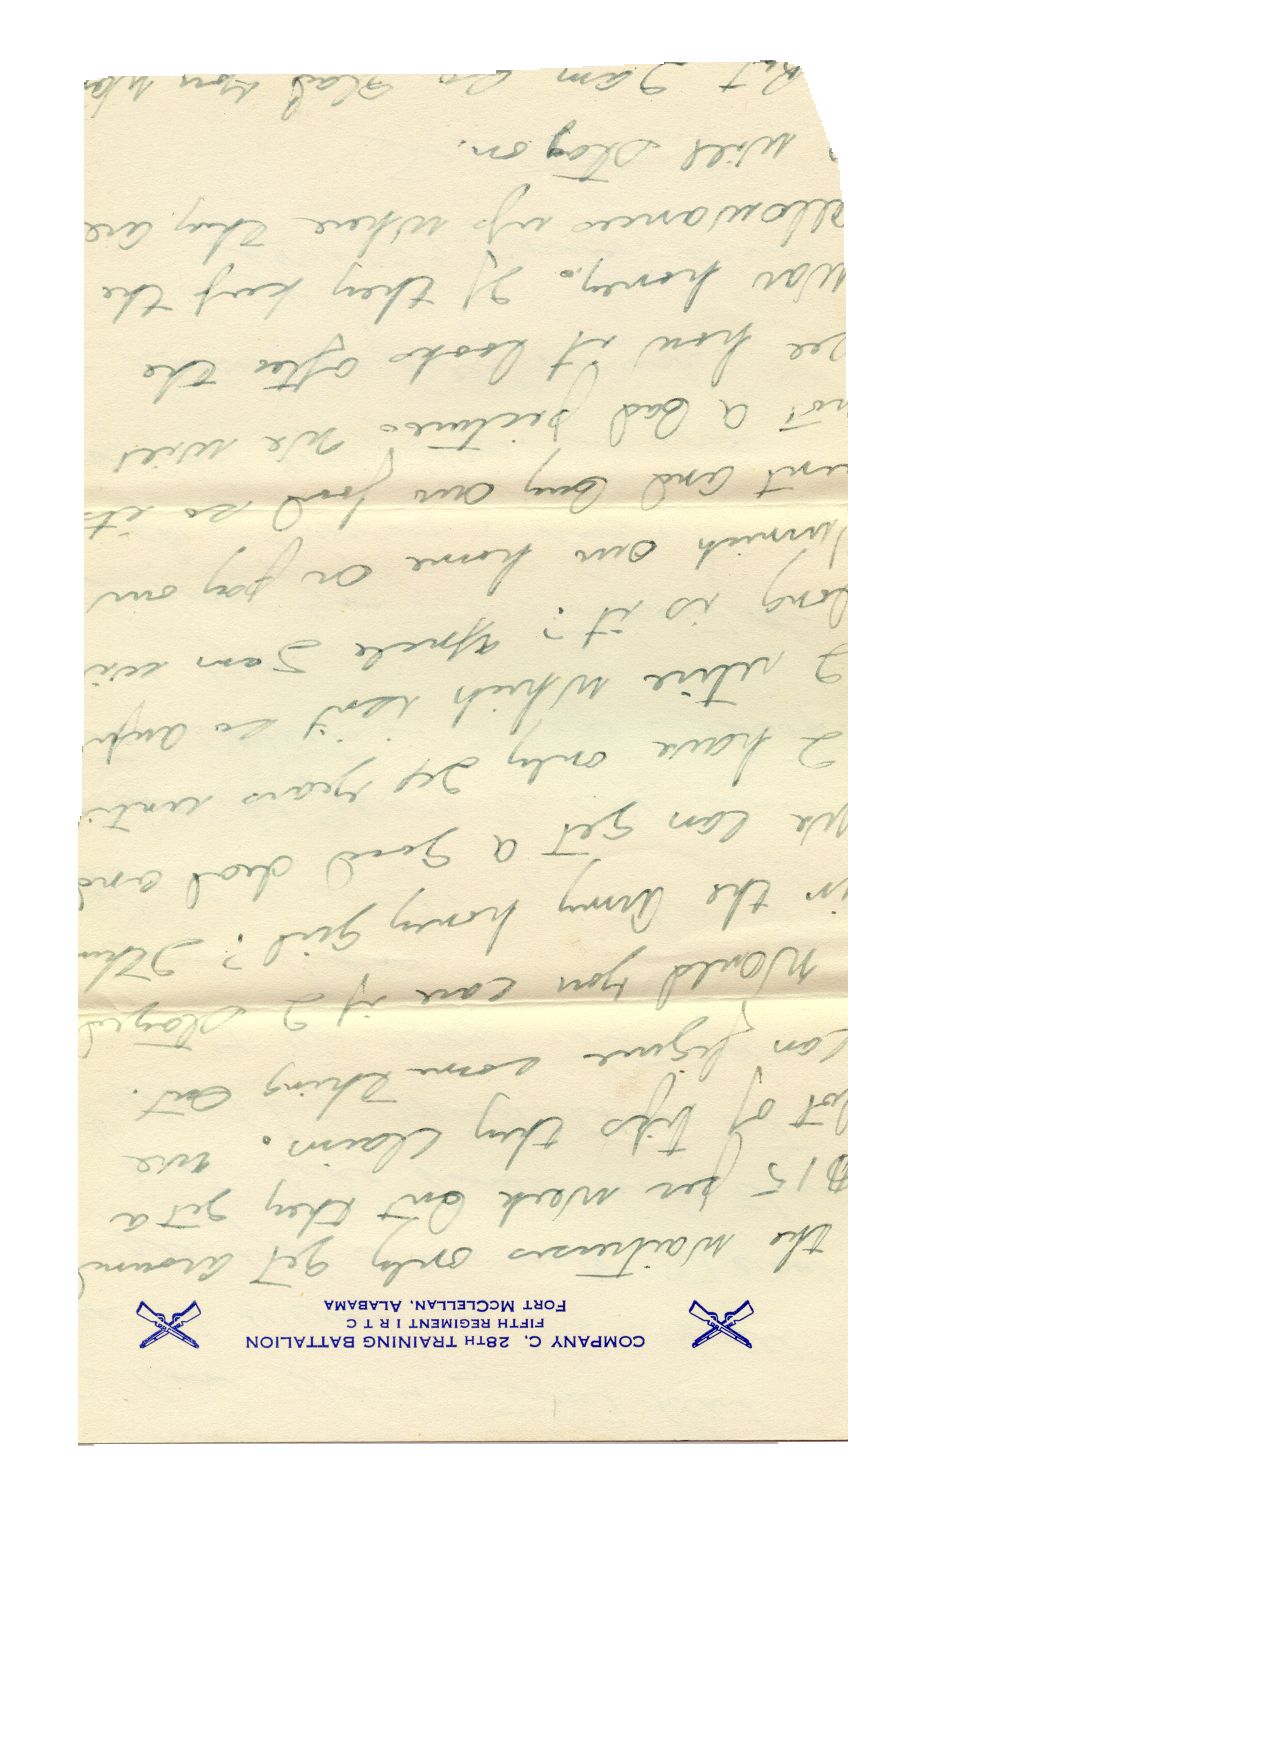 COMPANY C, 28TH TRAINING BATTALION
FIFTH REGIMENT I R T C
FORT MCCLELLAN, ALABAMA
the waitresses only get around
$15 per week but they get a
lot of tips they claim. we
can figure some thing out.
Would you care if I stayed
in the Army honey girl? I think
we can get a good deal and
I have only 24 years until
I retire which isn't so awful
long is it? They
furnish our home or pay our
rent and buy our food so its
not a bad picture. We will
see how it looks after the
war honey. If they keep the
allowances up where they are
I will stay on.
But I am so glad you